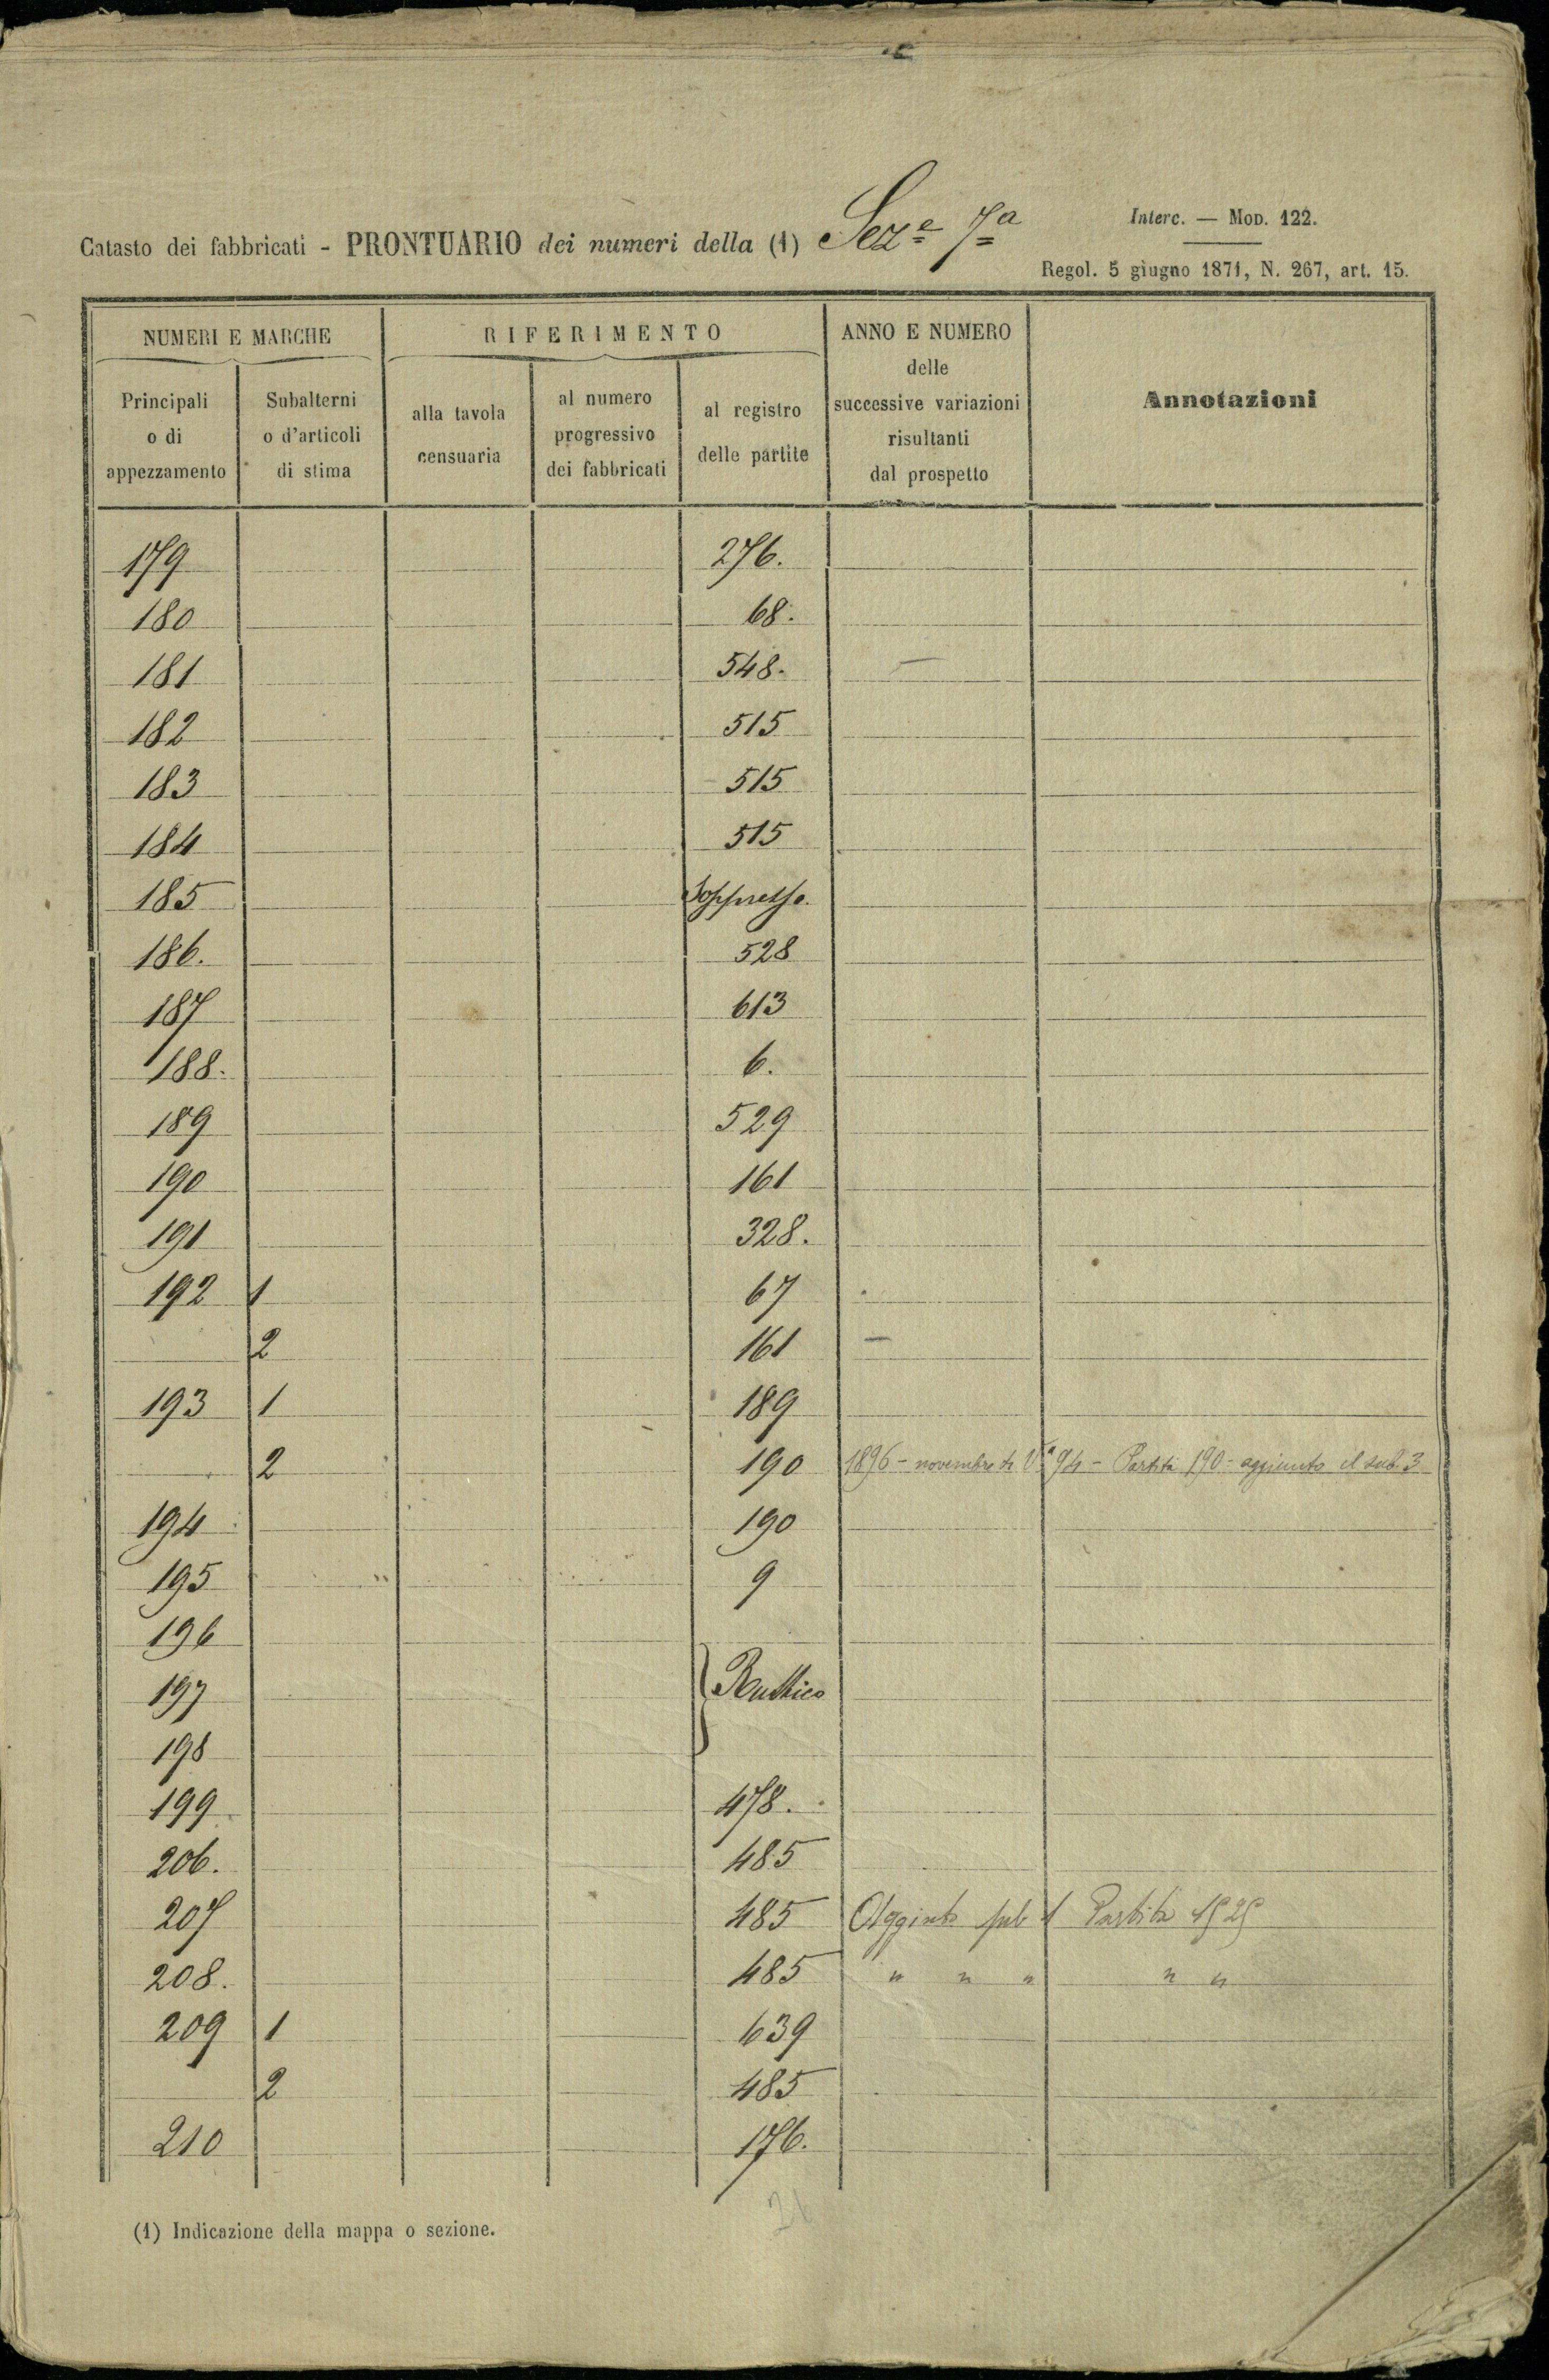 Catasto dei fabbricati - PRONTUARIO dei numeri della (1) Sez.e 7a
Interc. — Mod. 122.
Regol. 5 giugno 1871, N. 267, art. 15.
NUMERI E MARCHE
RIFERIMENTO
ANNO E NUMERO
delle
successive variazioni
risultanti
dal prospetto
Annotazioni
Principali
o di
appezzamento
Subalterni
o d'articoli
di stima
alla tavola
censuaria
al numero
progressivo
dei fabbricati
al registro
delle partite
179 276.
180 68.
181 548.
182 515
183 515
184 515
185 Soppresso.
186. 528
187 613
188. 6.
189 529
190 161
191 328.
192 1 67
2 161
193 1 189
2 190 1896 - novembre 94 - Partita 190 - aggiunto il sub 3
194 190
195 9
196
197 Rustico
198
199 478.
206. 485
207 485 Aggiunto sub 1 Partita 1529
208. 485 " " " " "
209 1 639
2 485
210 176.
26
(1) Indicazione della mappa o sezione.